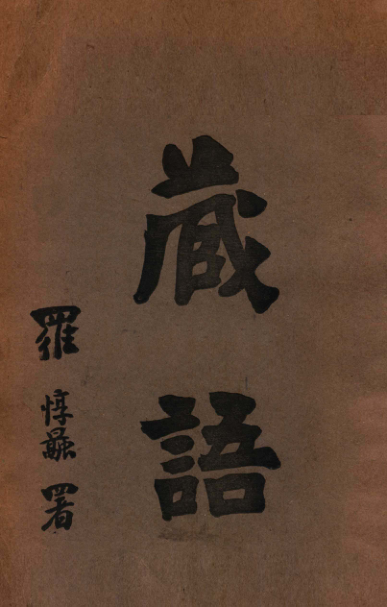 蔵語
羅惇曧署